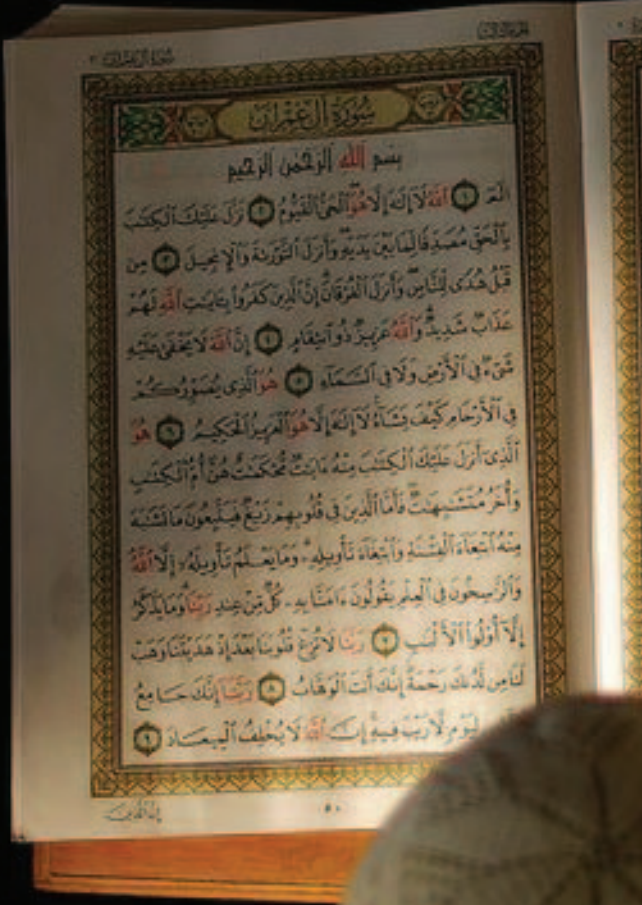 سُورَةُ آلِ عِمْرَان ٣
الجزء الثالث
سُورَةُ آلِ عِمْرَان
بِسْمِ اللَّهِ الرَّحْمَٰنِ الرَّحِيمِ
الٓمٓ ١ ٱللَّهُ لَآ إِلَٰهَ إِلَّا هُوَ ٱلْحَىُّ ٱلْقَيُّومُ ٢ نَزَّلَ عَلَيْكَ ٱلْكِتَٰبَ
بِٱلْحَقِّ مُصَدِّقًا لِّمَا بَيْنَ يَدَيْهِ وَأَنزَلَ ٱلتَّوْرَىٰةَ وَٱلْإِنجِيلَ ٣ مِن
قَبْلُ هُدًى لِّلنَّاسِ وَأَنزَلَ ٱلْفُرْقَانَ إِنَّ ٱلَّذِينَ كَفَرُوا۟ بِـَٔايَٰتِ ٱللَّهِ لَهُمْ
عَذَابٌ شَدِيدٌ وَٱللَّهُ عَزِيزٌ ذُو ٱنتِقَامٍ ٤ إِنَّ ٱللَّهَ لَا يَخْفَىٰ عَلَيْهِ
شَىْءٌ فِى ٱلْأَرْضِ وَلَا فِى ٱلسَّمَآءِ ٥ هُوَ ٱلَّذِى يُصَوِّرُكُمْ
فِى ٱلْأَرْحَامِ كَيْفَ يَشَآءُ لَآ إِلَٰهَ إِلَّا هُوَ ٱلْعَزِيزُ ٱلْحَكِيمُ ٦ هُوَ
ٱلَّذِىٓ أَنزَلَ عَلَيْكَ ٱلْكِتَٰبَ مِنْهُ ءَايَٰتٌ مُّحْكَمَٰتٌ هُنَّ أُمُّ ٱلْكِتَٰبِ
وَأُخَرُ مُتَشَٰبِهَٰتٌ فَأَمَّا ٱلَّذِينَ فِى قُلُوبِهِمْ زَيْغٌ فَيَتَّبِعُونَ مَا تَشَٰبَهَ
مِنْهُ ٱبْتِغَآءَ ٱلْفِتْنَةِ وَٱبْتِغَآءَ تَأْوِيلِهِۦ وَمَا يَعْلَمُ تَأْوِيلَهُۥٓ إِلَّا ٱللَّهُ
وَٱلرَّٰسِخُونَ فِى ٱلْعِلْمِ يَقُولُونَ ءَامَنَّا بِهِۦ كُلٌّ مِّنْ عِندِ رَبِّنَا وَمَا يَذَّكَّرُ
إِلَّآ أُو۟لُوا۟ ٱلْأَلْبَٰبِ ٧ رَبَّنَا لَا تُزِغْ قُلُوبَنَا بَعْدَ إِذْ هَدَيْتَنَا وَهَبْ
لَنَا مِن لَّدُنكَ رَحْمَةً إِنَّكَ أَنتَ ٱلْوَهَّابُ ٨ رَبَّنَآ إِنَّكَ جَامِعُ
لِيَوْمٍ لَّا رَيْبَ فِيهِ إِنَّ ٱللَّهَ لَا يُخْلِفُ ٱلْمِيعَادَ ٩
٥٠
إِنَّ الَّذِينَ